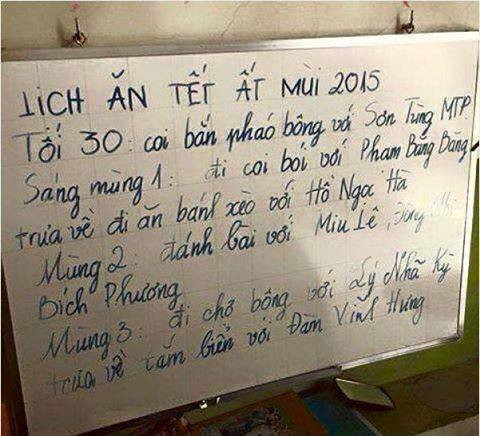 LỊCH ĂN TẾT ẤT MÙI 2015
Tối 30: coi bắn pháo bông với Sơn Tùng MTP
Sáng mùng 1: đi coi bói với Phạm Băng Băng
trưa về đi ăn bánh xèo với Hồ Ngọc Hà
Mùng 2: đánh bài với Miu Lê, Đông Nhi
Bích Phương
Mùng 3: đi chợ bông với Lý Nhã Kỳ
trưa về tắm biển với Đàm Vĩnh Hưng